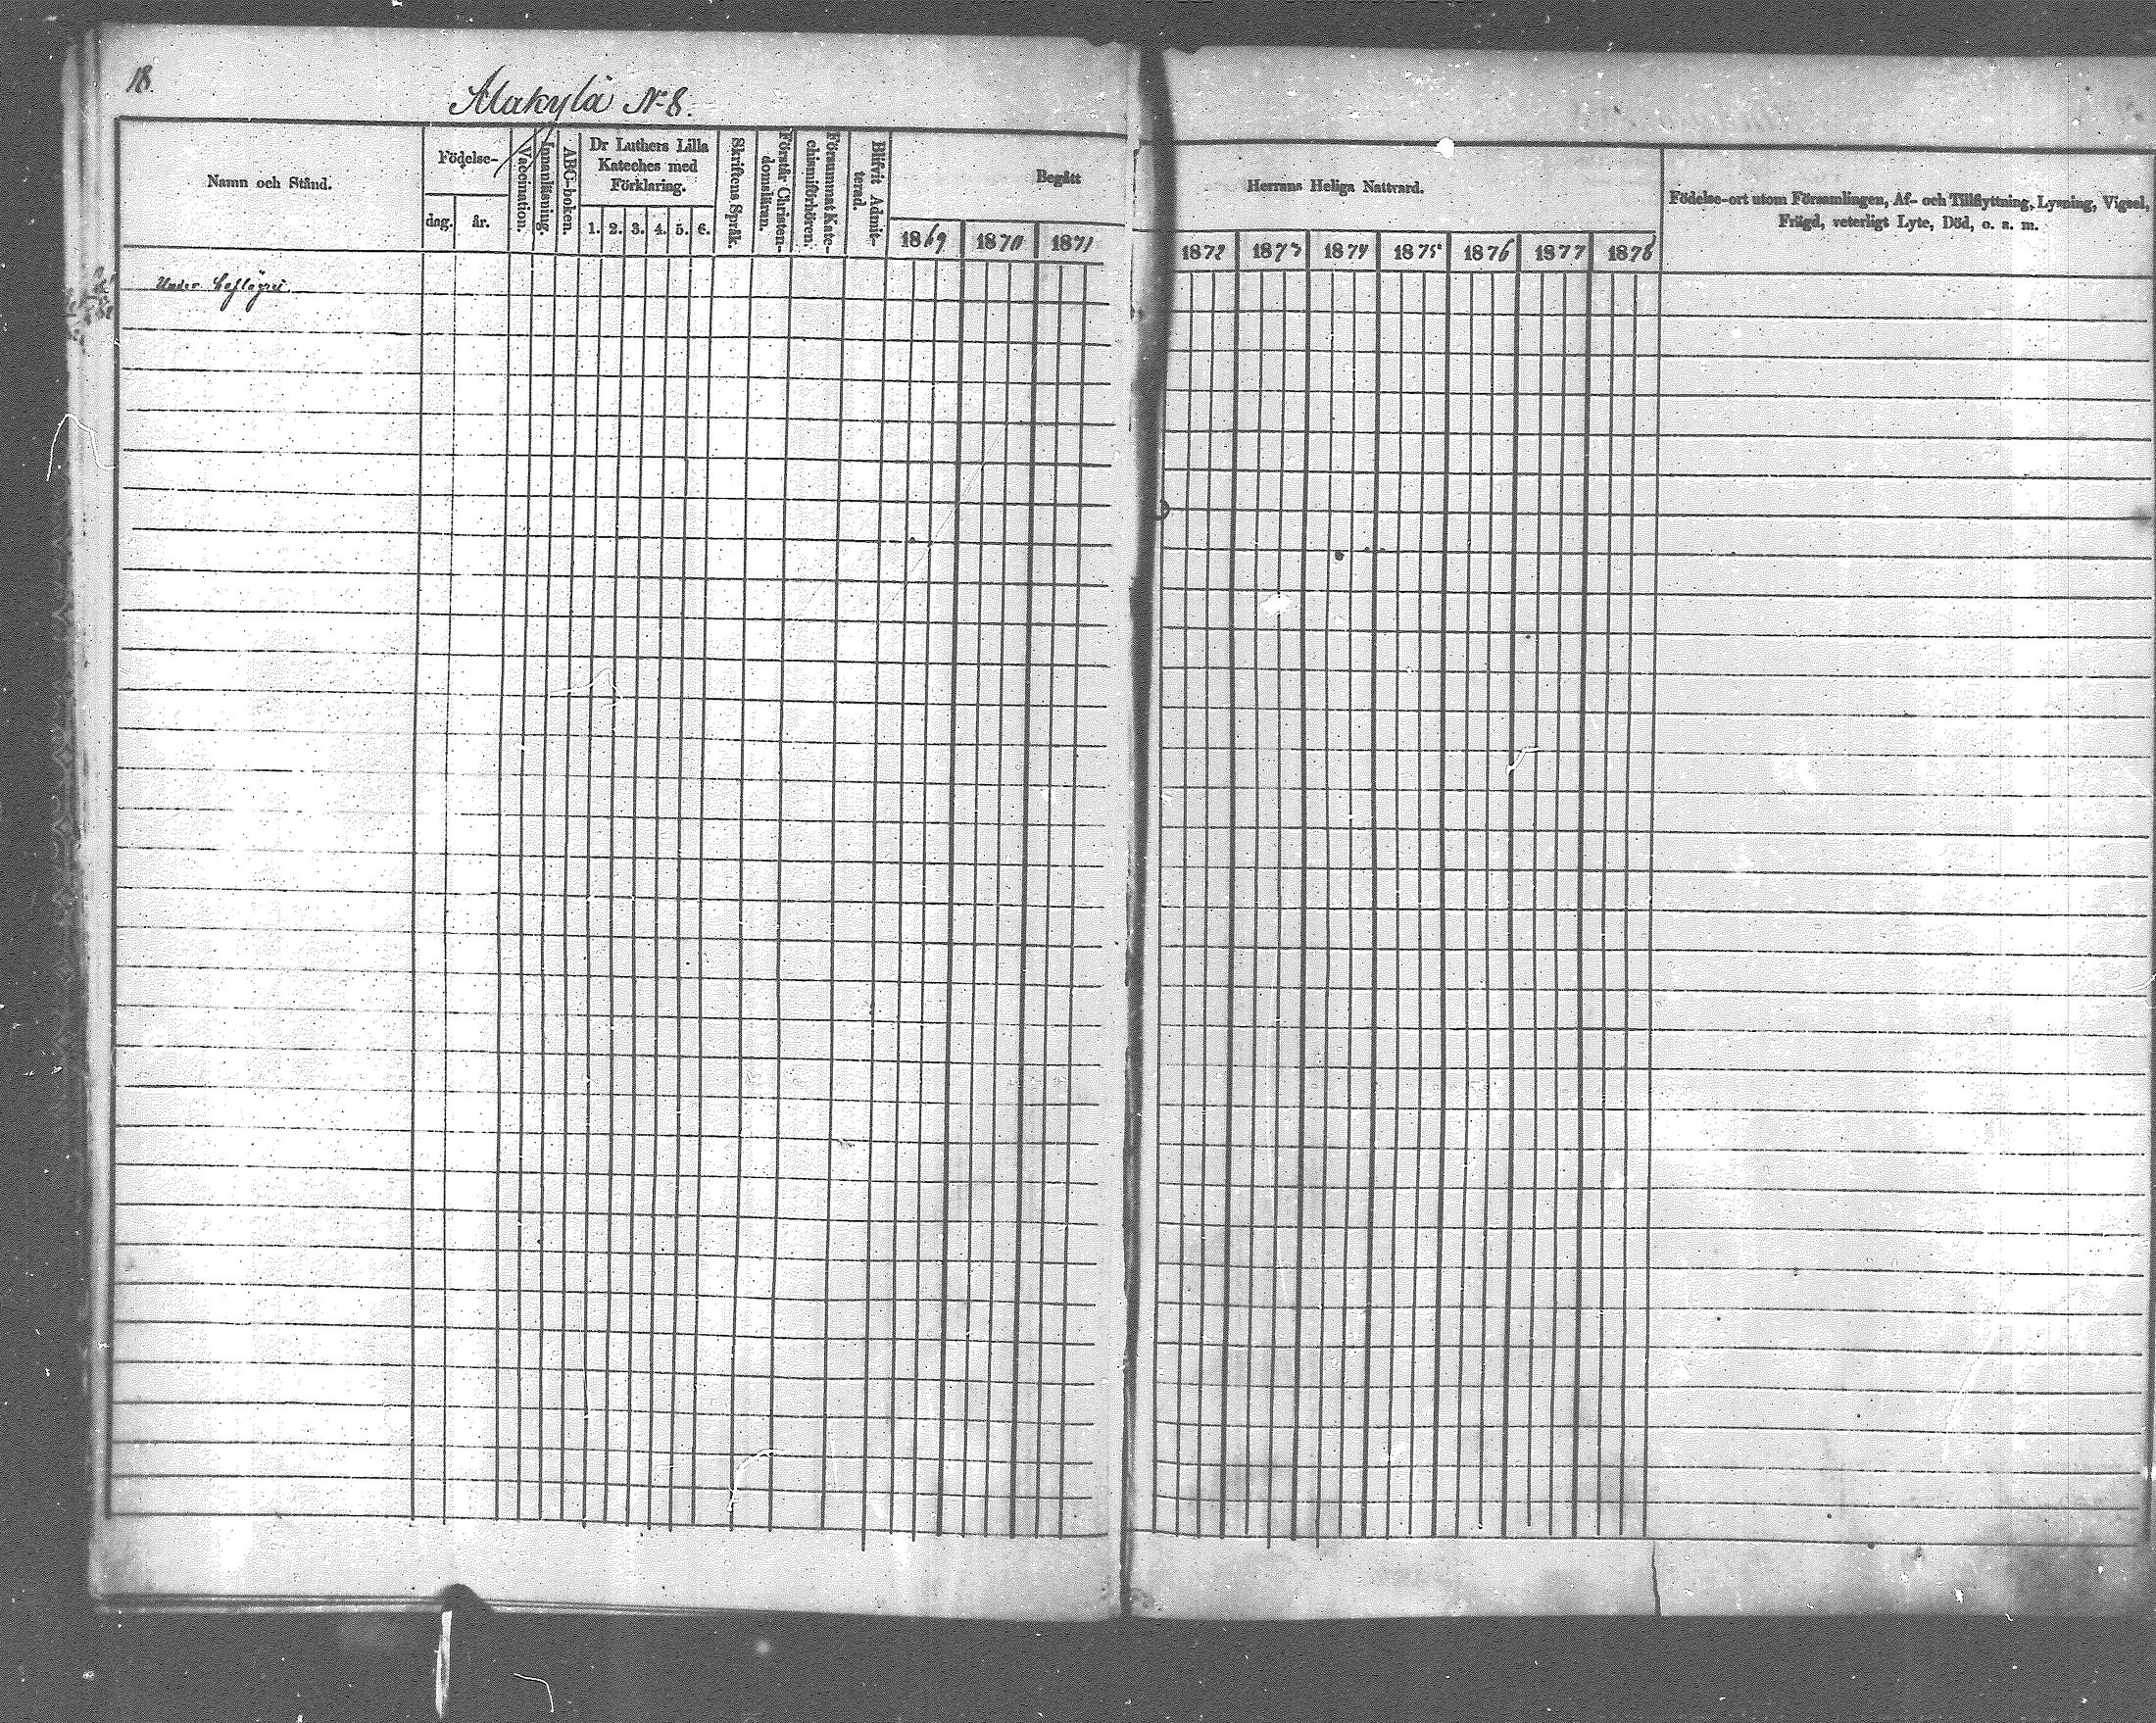 18.
Alakylä No 8.
Namn och Stånd.
Födelse-
dag.
år.
Vaccination.
Innanläsning.
ABC-boken.
Dr Luthers Lilla
Kateches med
Förklaring.
1. 2. 3. 4. 5. 6.
Skriftens Språk.
Förstår Christen-
domsläran.
Försummat Kate-
chismiförhören.
Blifvit Admit-
terad.
Begått
1869 1870 1871
Herrans Heliga Nattvard.
1872 1873 1874 1875 1876 1877 1878
Födelse-ort utom Församlingen, Af- och Tillflyttning, Lysning, Vigsel,
Frägd, veterligt Lyte, Död, o. s. m.
Under